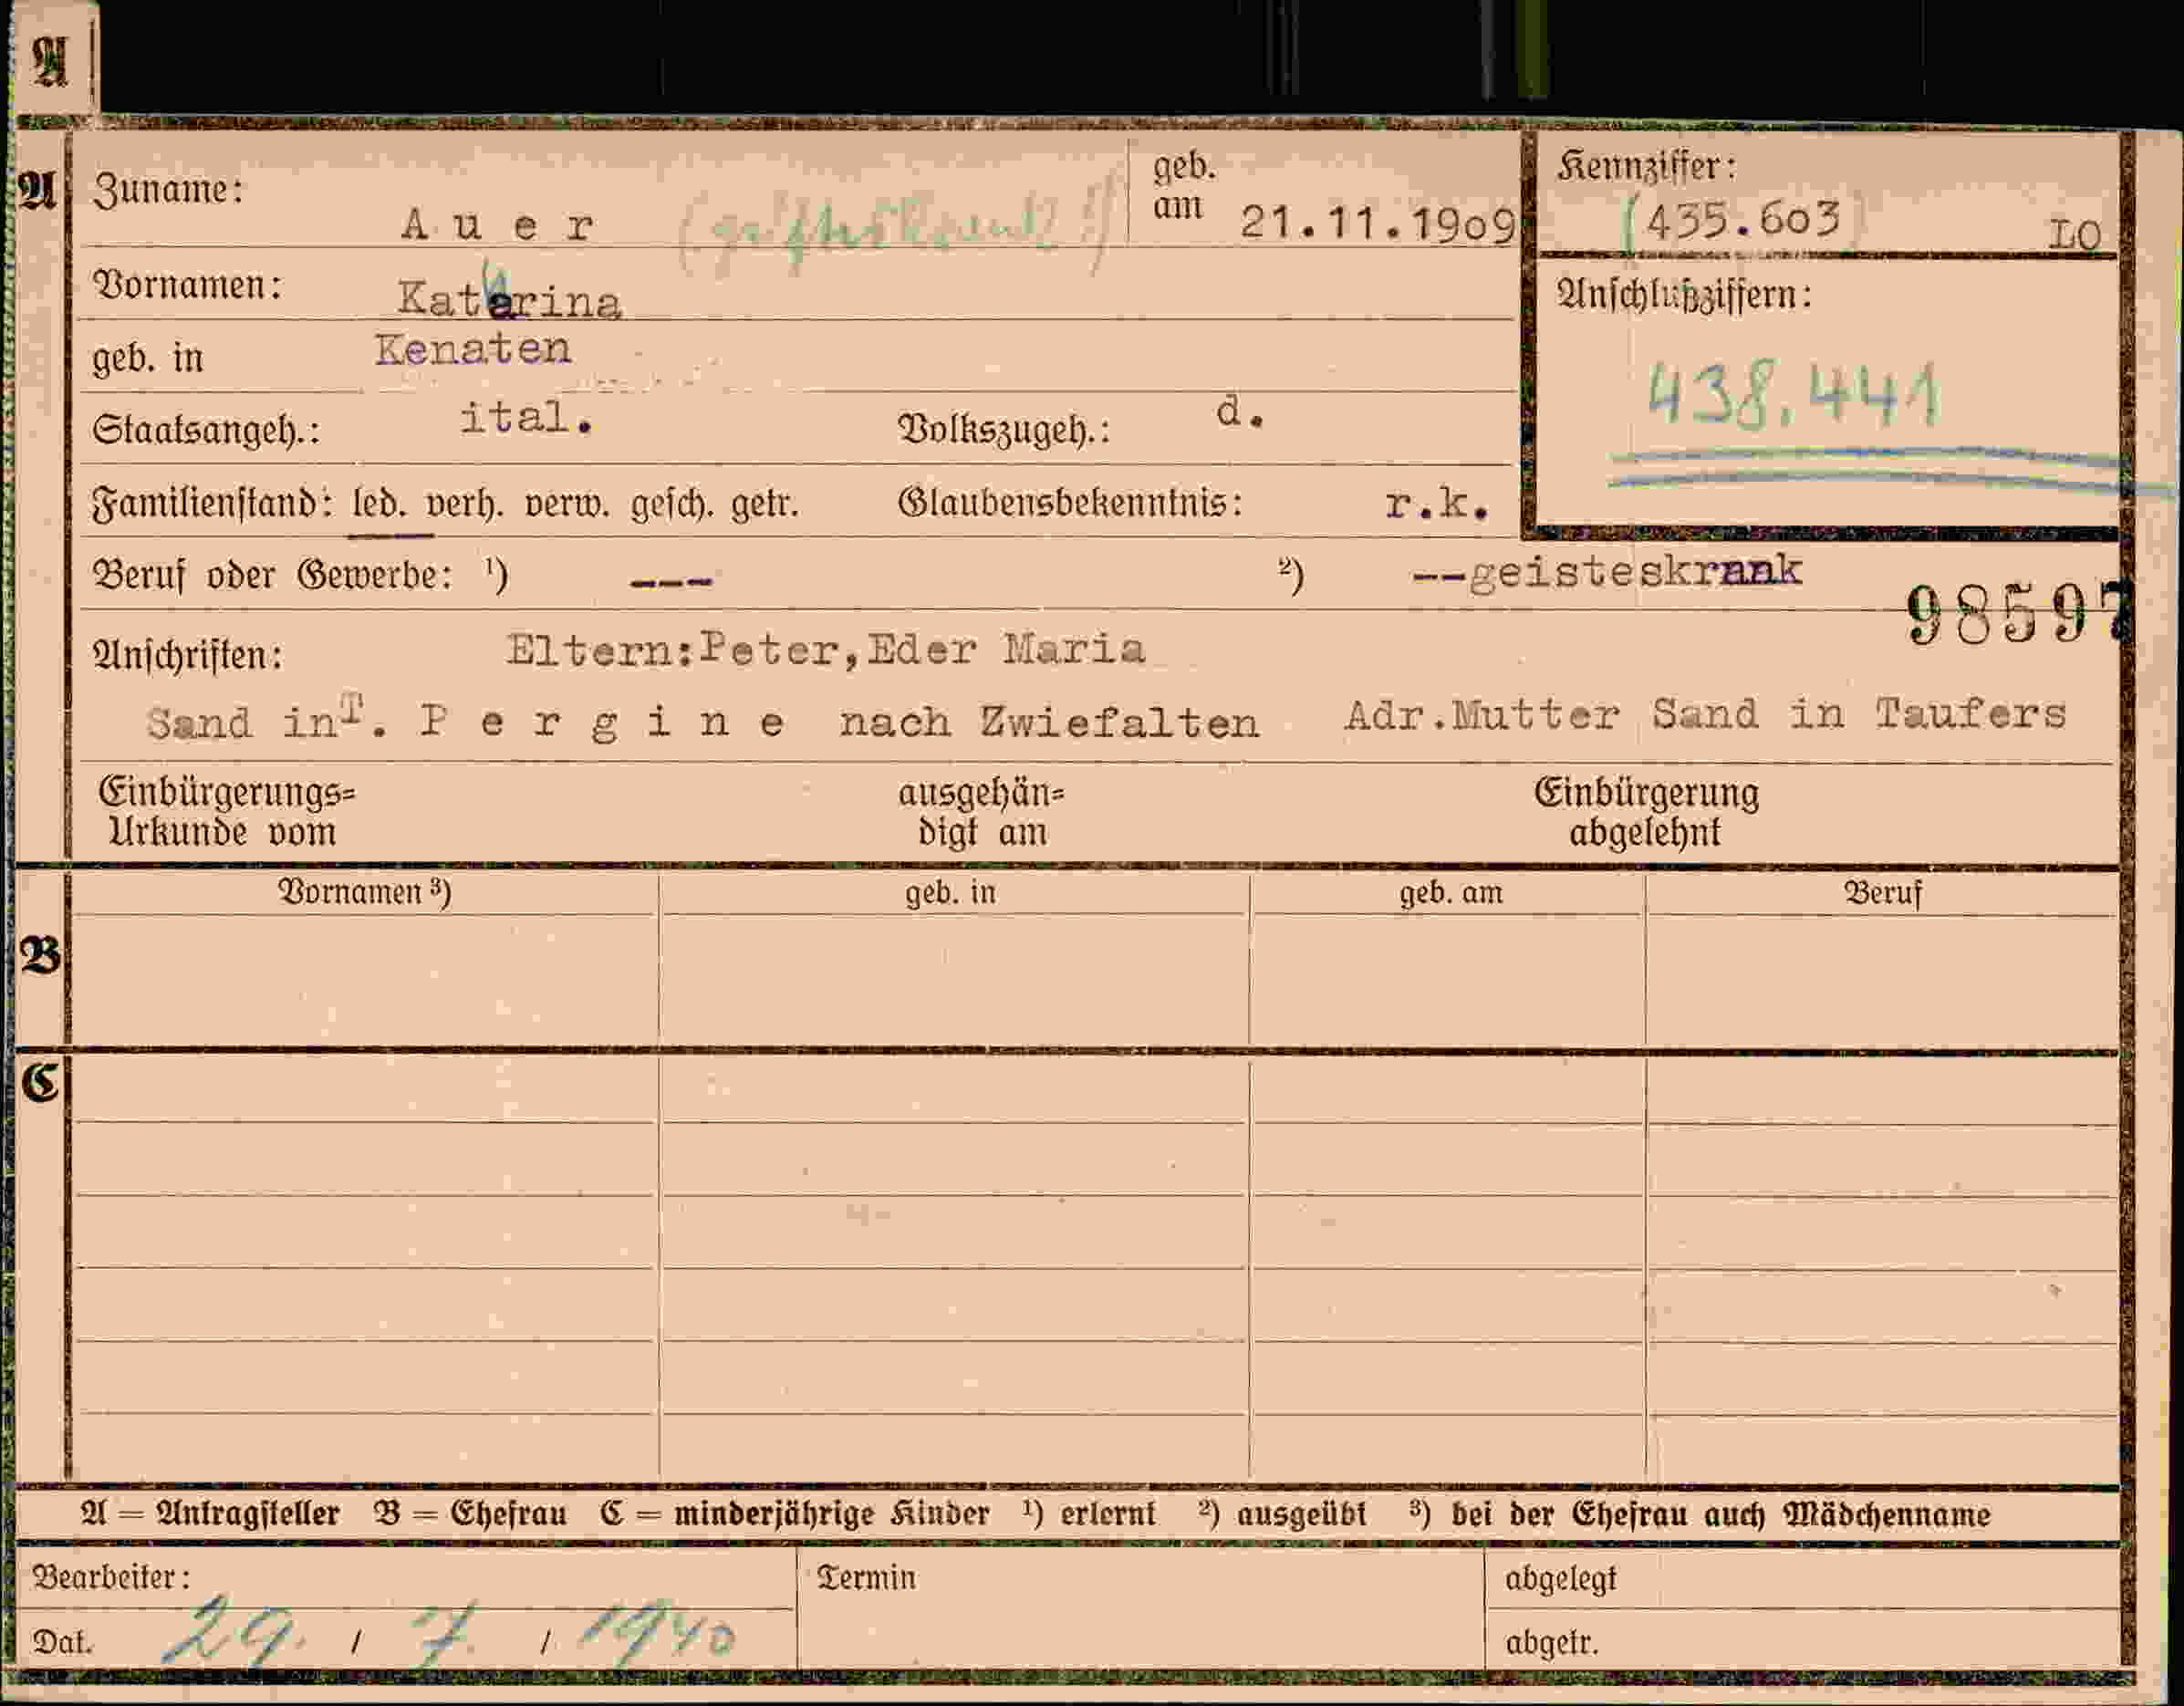 A
A Zuname: A u e r (geisteskrank!) geb. am 21.11.1909
Kennziffer: (435.603) LO
Vornamen: Katharina
Anschlußziffern:
geb. in Kenaten
438.441
Staatsangeh.: ital. Volkszugeh.: d.
Familienstand: led. verh. verw. gesch. getr. Glaubensbekenntnis: r.k.
Beruf oder Gewerbe: ¹) --- ²) --geisteskrank
98597
Anschriften: Eltern:Peter,Eder Maria
Sand in T. P e r g i n e nach Zwiefalten Adr.Mutter Sand in Taufers
Einbürgerungs= ausgehän= Einbürgerung
Urkunde vom digt am abgelehnt
Vornamen ³) geb. in geb. am Beruf
B
C
A = Antragsteller B = Ehefrau C = minderjährige Kinder ¹) erlernt ²) ausgeübt ³) bei der Ehefrau auch Mädchenname
Bearbeiter: Termin abgelegt
Dat. 29. / 7. / 1940 abgetr.